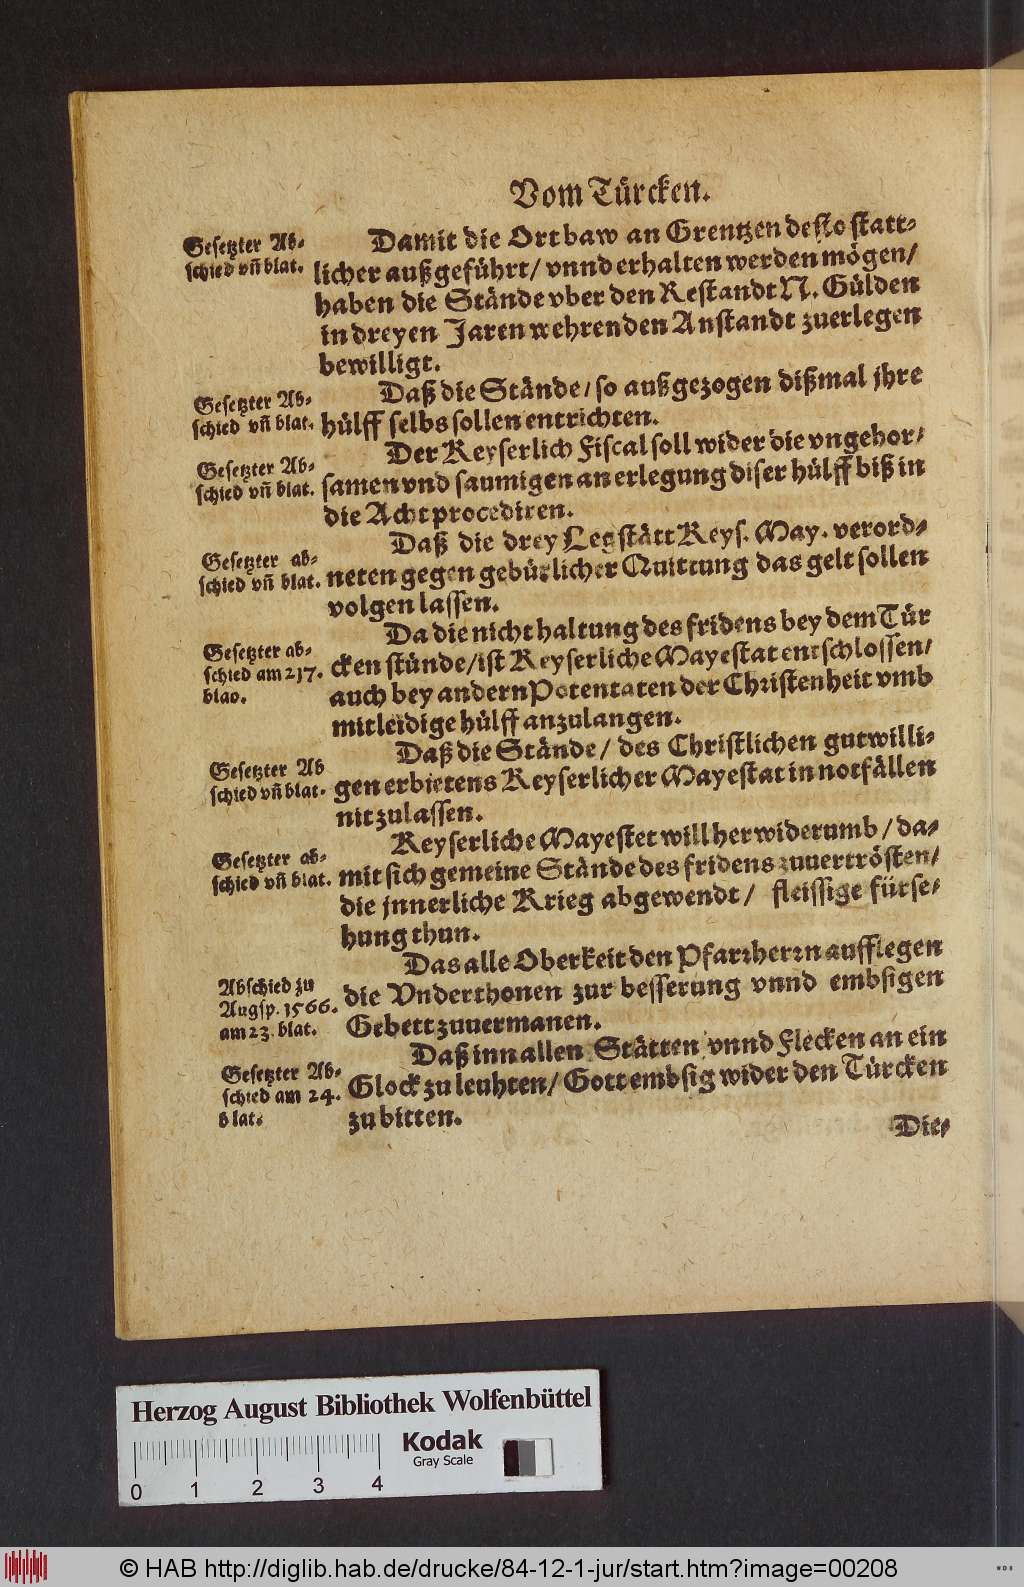 Vom Türcken.
Gesetzter Ab-
schied vñ blat.
Damit die Ortbaw an Grentzen desto statt-
licher außgeführt/ vnnd erhalten werden mögen/
haben die Stände vber den Restandt N. Gülden
in dreyen Jaren wehrenden Anstandt zuerlegen
bewilligt.
Gesetzter Ab-
schied vñ blat.
Daß die Stände/ so außgezogen dißmal jhre
hülff selbs sollen entrichten.
Gesetzter Ab-
schied vñ blat.
Der Keyserlich Fiscal soll wider die vngehor-
samen vnd saumigen an erlegung diser hülff biß in
die Acht procediren.
Gesetzter ab-
schied vñ blat.
Daß die drey Legstätt Keys. May. verord-
neten gegen gebürlicher Quittung das gelt sollen
volgen lassen.
Gesetzter ab-
schied am 217.
blad.
Da die nicht haltung des fridens bey dem Tür
cken stünde/ ist Keyserliche Mayestat entschlossen/
auch bey andern Potentaten der Christenheit vmb
mitleidige hülff anzulangen.
Gesetzter Ab
schied vñ blat.
Daß die Stände/ des Christlichen gutwilli-
gen erbietens Keyserlicher Mayestat in notfällen
nit zulassen.
Gesetzter ab-
schied vñ blat.
Keyserliche Mayestet will herwiderumb/ da-
mit sich gemeine Stände des fridens zuuertrösten/
die jnnerliche Krieg abgewendt/ fleissige fürse-
hung thun.
Abschied zu
Augsp. 1566.
am 23. blat.
Das alle Oberkeit den Pfarrherrn aufflegen
die Vnderthonen zur besserung vnnd embsigen
Gebett zuuermanen.
Gesetzter Ab-
schied am 24.
blat.
Daß inn allen Stätten vnnd Flecken an ein
Glock zu leuhten/ Gott embsig wider den Türcken
zu bitten.
Die-
Herzog August Bibliothek Wolfenbüttel
Kodak
Gray Scale
0 1 2 3 4
© HAB http://diglib.hab.de/drucke/84-12-1-jur/start.htm?image=00208